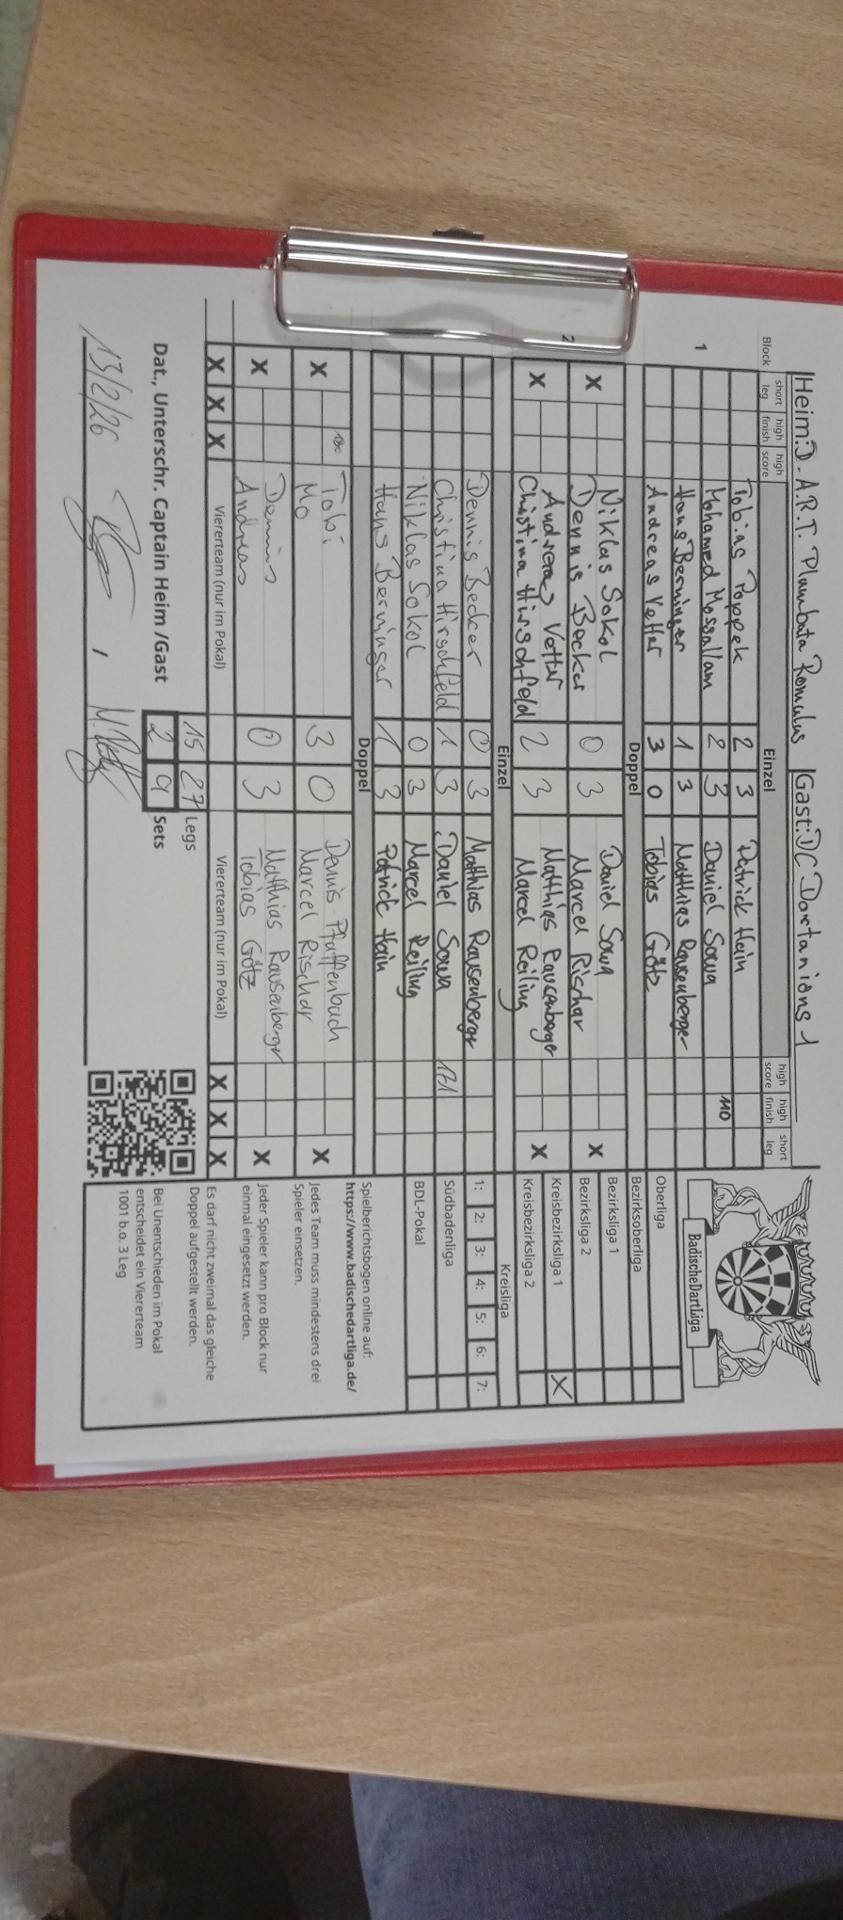 Heim: D.A.R.T. Plumbata Romulus Gast: DC Dartanions 1
Block short leg high finish high score Einzel high score high finish short leg
1
Tobias Poppek 2 3 Patrick Hain
Mohamed Mossallam 2 3 Daniel Sawa 110
Hans Berninger 1 3 Matthias Rausenberger
Andreas Vetter 3 0 Tobias Götz
Doppel
Niklas Sokol Daniel Sawa
X Dennis Becker 0 3 Marcel Rischar X
2
Andreas Vetter Matthias Rausenberger
X Christina Hirschfeld 2 3 Marcel Reiling X
Einzel
Dennis Becker 0 3 Matthias Rausenberger
Christina Hirschfeld 1 3 Daniel Sawa 171
Niklas Sokol 0 3 Marcel Reiling
Hans Berninger 1 3 Patrick Hain
Doppel
180 Tobi Dennis Pfaffenbach
X Mo 3 0 Marcel Rischar X
Dennis Matthias Rausenberger
X Andreas 0 3 Tobias Götz X
X X X Viererteam (nur im Pokal) Viererteam (nur im Pokal) X X X
15 27 Legs
Dat., Unterschr. Captain Heim /Gast 2 9 Sets
13/2/26
BadischeDartLiga
Oberliga
Bezirksoberliga
Bezirksliga 1
Bezirksliga 2
Kreisbezirksliga 1 X
Kreisbezirksliga 2
Kreisliga
1: 2: 3: 4: 5: 6: 7:
Südbadenliga
BDL-Pokal
Spielberichtsbogen online auf:
https://www.badischedartliga.de/
Jedes Team muss mindestens drei
Spieler einsetzen.
Jeder Spieler kann pro Block nur
einmal eingesetzt werden.
Es darf nicht zweimal das gleiche
Doppel aufgestellt werden.
Bei Unentschieden im Pokal
entscheidet ein Viererteam
1001 b.o. 3 Leg